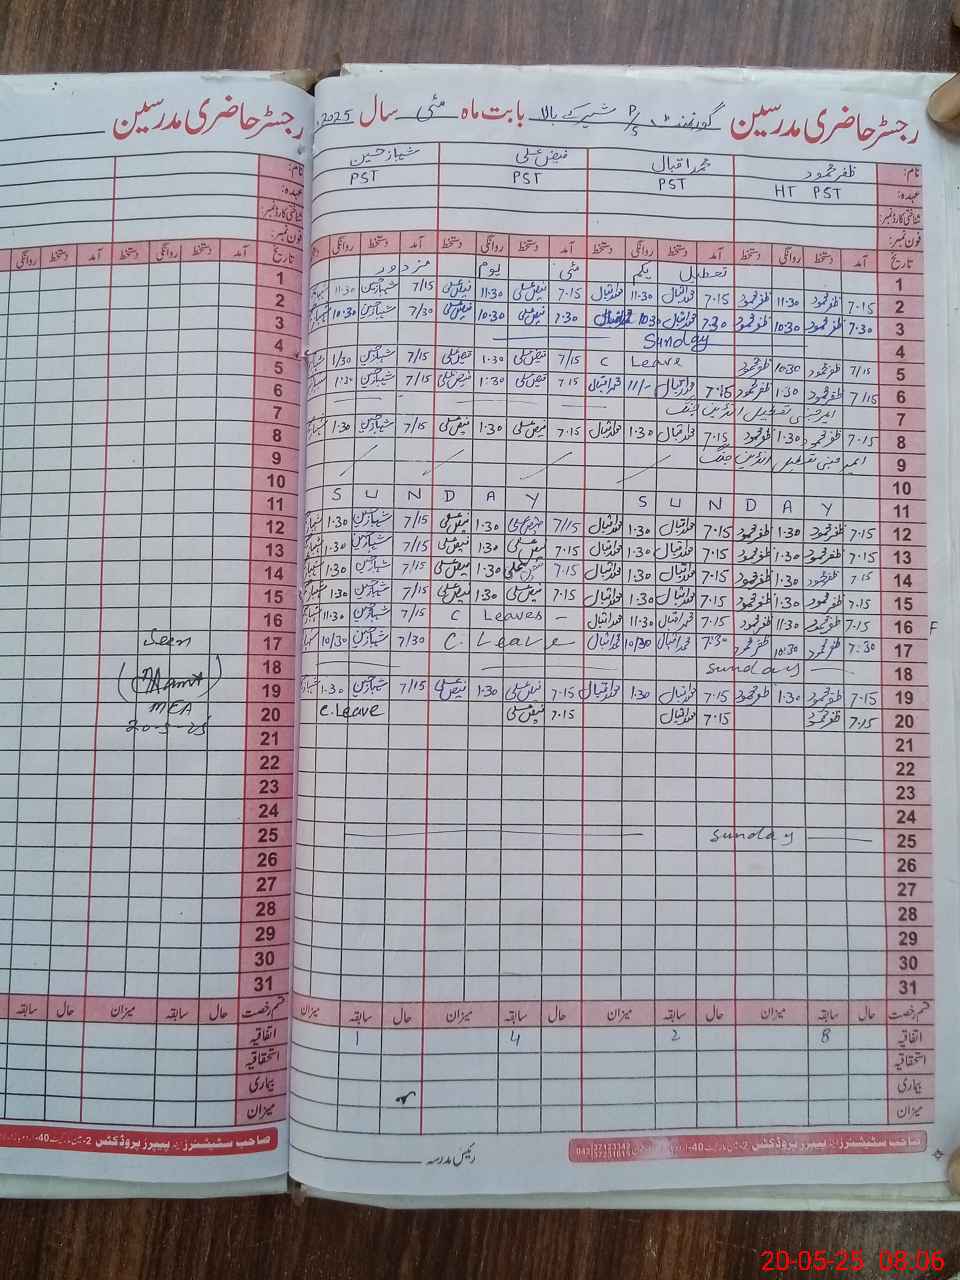 رجسٹر حاضری مدرسین گورنمنٹ P/S شیر کے بالا بابت ماہ مئی سال 2025
نام: ظفر محمود محمد اقبال فیض علی شہباز حسین
عہدہ: HT PST PST PST PST
شناختی کارڈ نمبر:
فون نمبر:
تاریخ آمد دستخط روانگی دستخط آمد دستخط روانگی دستخط آمد دستخط روانگی دستخط آمد دستخط روانگی
1 تعطیل یکم مئی یوم مزدور
2 7.15 ظفر محمود 11.30 ظفر محمود 7.15 محمد اقبال 11.30 محمد اقبال 7.15 فیض علی 11.30 فیض علی 7/15 شہباز حسین 11.30
3 7.30 ظفر محمود 10:30 ظفر محمود 7.30 محمد اقبال 10:30 محمد اقبال 7.30 فیض علی 10:30 فیض علی 7/30 شہباز حسین 10:30
4 Sunday
5 7/15 ظفر محمود 10:30 ظفر محمود C Leave 7/15 فیض علی 1.30 فیض علی 7/15 شہباز حسین 1/30
6 7/15 ظفر محمود 1:30 ظفر محمود 7.15 محمد اقبال 11/- محمد اقبال 7.15 فیض علی 1:30 فیض علی 7/15 شہباز حسین 1:30
7 ایمرجنسی تعطیل انڈین جنگ
8 7.15 ظفر محمود 1.30 ظفر محمود 7.15 محمد اقبال 1.30 محمد اقبال 7.15 فیض علی 1.30 فیض علی 7/15 شہباز حسین 1.30
9 ایمرجنسی تعطیل انڈین جنگ
10
11 S U N D A Y S U N D A Y
12 7.15 ظفر محمود 1.30 ظفر محمود 7.15 محمد اقبال 1.30 محمد اقبال 7/15 فیض علی 1.30 فیض علی 7/15 شہباز حسین 1.30
13 7.15 ظفر محمود 1.30 ظفر محمود 7.15 محمد اقبال 1.30 محمد اقبال 7.15 فیض علی 1.30 فیض علی 7/15 شہباز حسین 1.30
14 7.15 ظفر محمود 1.30 ظفر محمود 7.15 محمد اقبال 1.30 محمد اقبال 7.15 فیض علی 1.30 فیض علی 7/15 شہباز حسین 1.30
15 7.15 ظفر محمود 1:30 ظفر محمود 7.15 محمد اقبال 1.30 محمد اقبال 7.15 فیض علی 1:30 فیض علی 7/15 شہباز حسین 1:30
16 7.15 ظفر محمود 11:30 ظفر محمود 7.15 محمد اقبال 11.30 محمد اقبال C Leaves 7/15 شہباز حسین 11:30
17 7:30 ظفر محمود 10:30 ظفر محمود 7:30 محمد اقبال 10/30 محمد اقبال C. Leave 7/30 شہباز حسین 10/30
18 Sunday
19 7.15 ظفر محمود 1.30 ظفر محمود 7.15 محمد اقبال 1.30 محمد اقبال 7.15 فیض علی 1.30 فیض علی 7/15 شہباز حسین 1.30
20 7.15 ظفر محمود 7.15 محمد اقبال 7.15 فیض علی C.Leave
21
22
23
24
25 Sunday
26
27
28
29
30
31
قسم رخصت حال سابقہ میزان حال سابقہ میزان حال سابقہ میزان حال سابقہ میزان
اتفاقیہ 8 2 4 1
استحقاقیہ
بیماری
میزان
رئیس مدرسہ
صاحب سٹیشنرز اینڈ پیپرز پروڈکٹس
042 37123349
37231619
رجسٹر حاضری مدرسین
نام:
عہدہ:
شناختی کارڈ نمبر:
فون نمبر:
تاریخ آمد دستخط روانگی دستخط آمد دستخط روانگی
1
2
3
4
5
6
7
8
9
10
11
12
13
14
15
16
17 Seen
18
19
20 MEA
20-5-25
21
22
23
24
25
26
27
28
29
30
31
قسم رخصت حال سابقہ میزان حال سابقہ
اتفاقیہ
استحقاقیہ
بیماری
میزان
صاحب سٹیشنرز اینڈ پیپرز پروڈکٹس
20-05-25 08:06